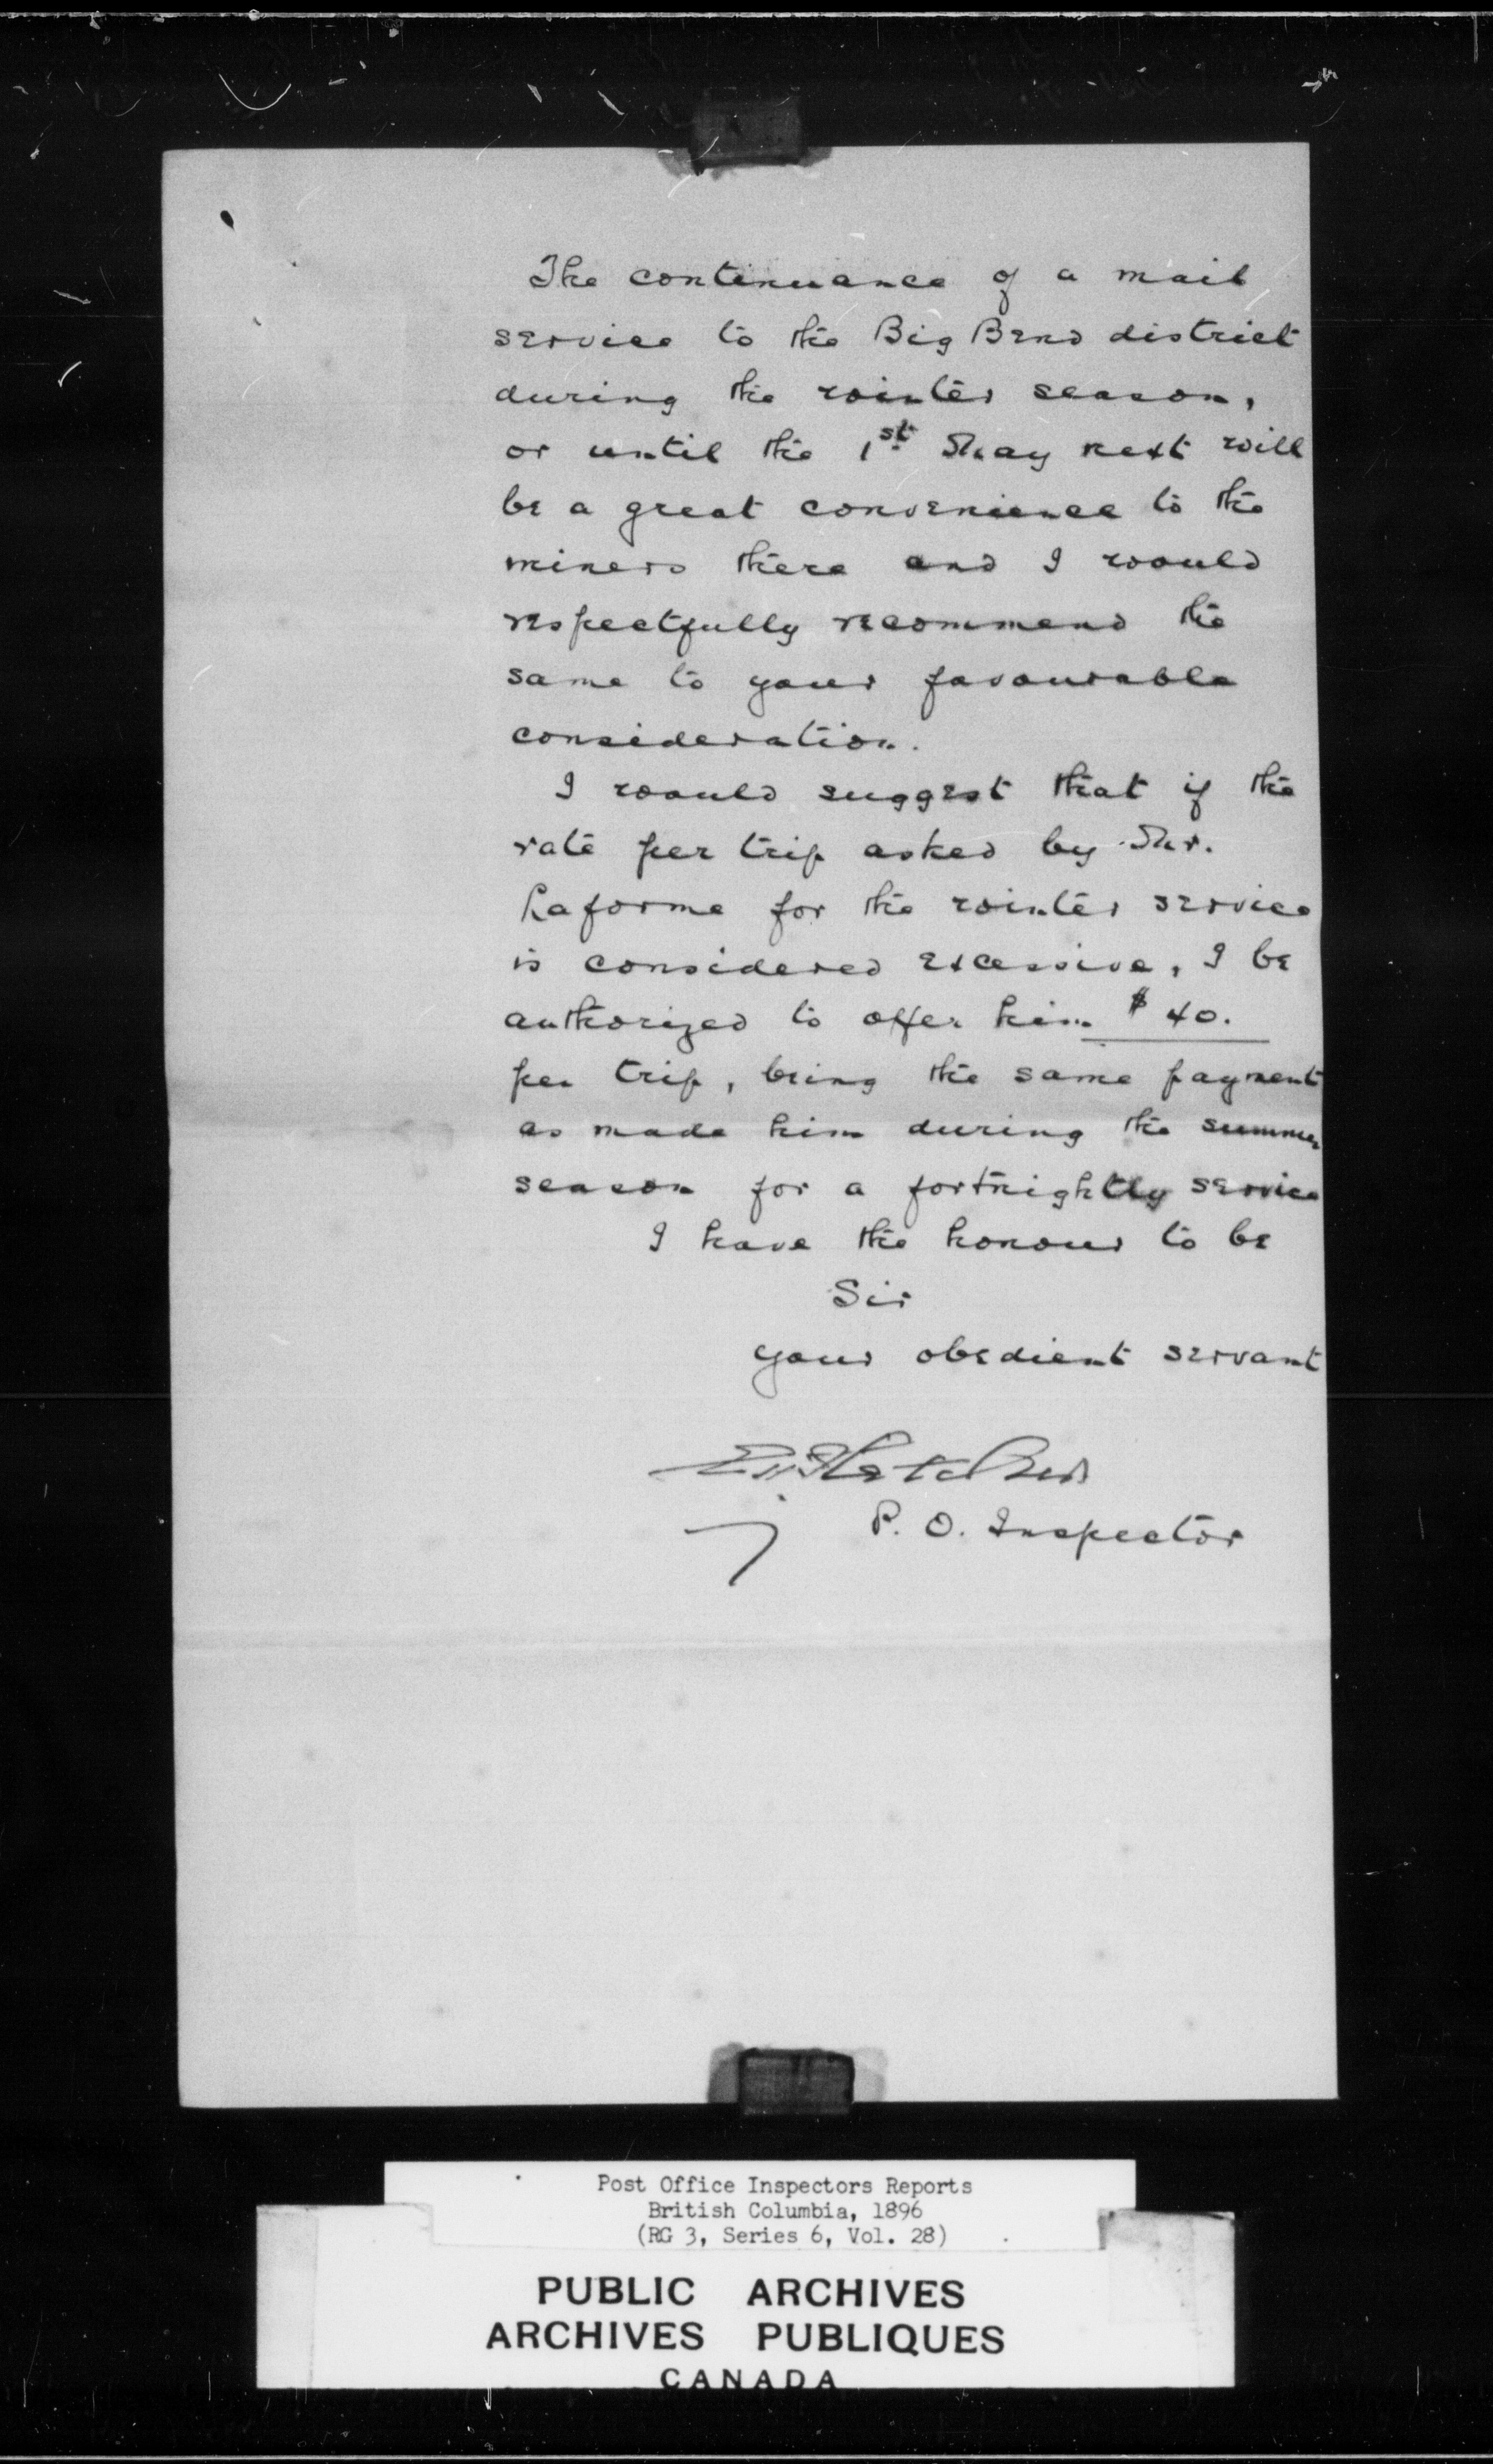 The continuance of a mail
service to the Big Bend district
during the winter season,
or until the 1st May next will
be a great convenience to the
miners there and I would
respectfully recommend the
same to your favourable
consideration.
I would suggest that if the
rate per trip asked by Mr.
Laforme for the winter service
is considered excessive, I be
authorized to offer him $40.
per trip, being the same payment
as made him during the summer
season for a fortnightly service
I have the honour to be
Sir
your obedient servant
E H Fletcher
P. O. Inspector
Post Office Inspectors Reports
British Columbia, 1896
(RG 3, Series 6, Vol. 28)
PUBLIC ARCHIVES
ARCHIVES PUBLIQUES
CANADA